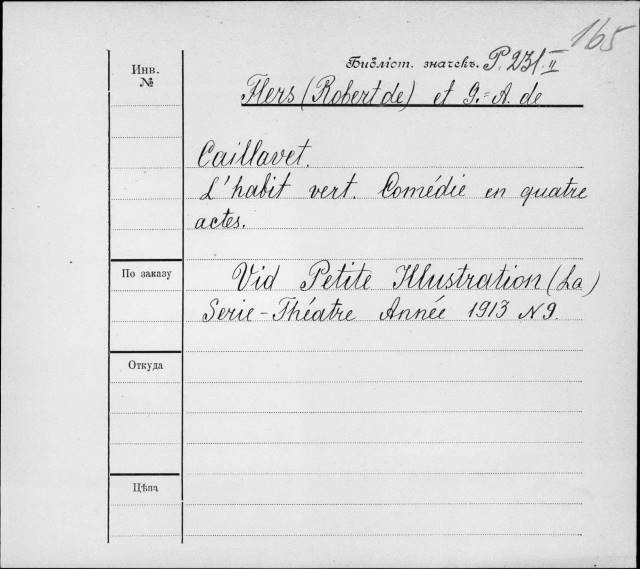 165
Инв.
№
Библіот. значекъ. P. 231 II
Flers (Robert de) et G.=A. de
Caillavet.
L'habit vert. Comédie en quatre
actes.
По заказу
Vid Petite Illustration (La)
Serie-Théatre Année 1913 N 9.
Откуда
Цѣна